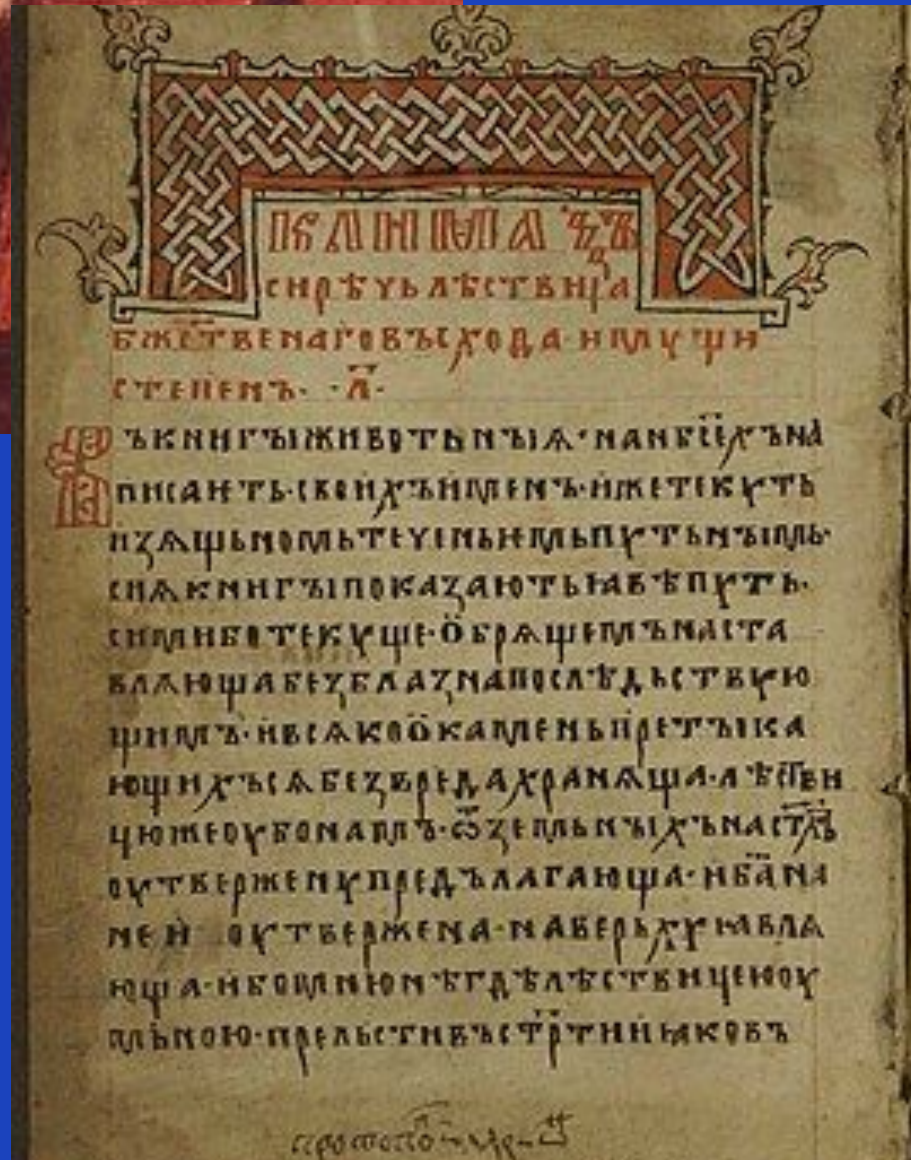 сирѣчь лѣствица
бжⷭ҇твенаговъсхода имꙋщи
степенъ · л҃ ·
Въкнигꙑживотьнꙑꙗ · нанб҃сехъна
писатисвоихъименъ · ижетекꙋть
изѧщьномьтечениемьпꙋтьнꙑмь ·
сиꙗкнигꙑпоказаютьꙗвѣпꙋть ·
симиботекꙋще · обрѧщемънаста
влѧющабезблазнапослѣдьствꙋю
щимъ · ивсѧкоокаменьпретꙑка
ющихъсѧбезвредахранѧща · лѣстви
цюжеоубонамъ · ѿземльнꙑхънаст҃хъ
оутверженꙋпредълагающа · иб҃ана
неи оутвержена · наверьхꙋꙗвлѧ
юща · ибомнюнѣгдѣлѣствицеюоу
мьною · прельстивъстрⷭ҇тииꙗковъ